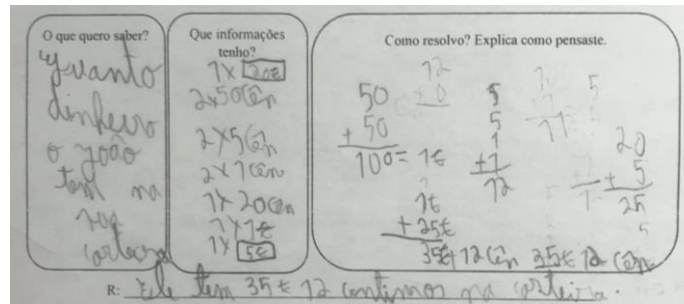 O que quero saber?
Quanto
dinheiro
o João
tem na
sua
carteira
Que informações
tenho?
1x 20€
2x50cên
2x5cên
2x1cên
1x20cen
1x1€
1x 5€
Como resolvo? Explica como pensaste.
50
+ 50
100= 1€
5
5
1
+1
12
1€
+ 25€
35€+12cên
11
5
20
+ 5
25
35€ 12 cên
R: Ele tem 35€ 12 centimos na carteira.